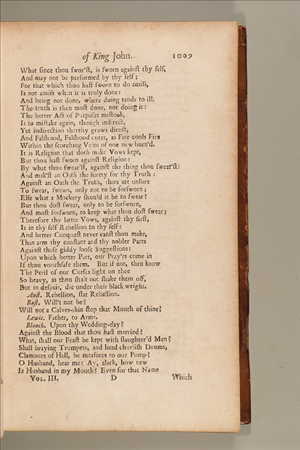 of King John. 1009
What since thou swor'st, is sworn against thy self,
And may not be performed by thy self;
For that which thou hast sworn to do amiss,
Is not amiss when it is truly done:
And being not done, where doing tends to ill,
The truth is then most done, not doing it:
The better Act of Purposes mistook,
Is to mistake again, though indirect,
Yet indirection thereby grows direct,
And Falshood, Falshood cures, as Fire cools Fire
Within the scorching Veins of one new burn'd.
It is Religion that doth make Vows kept,
But thou hast sworn against Religion:
By what thou swear'st, against the thing thou swear'st:
And mak'st an Oath the surety for thy Truth:
Against an Oath the Truth, thou art unsure
To swear, swears, only not to be forsworn;
Else what a Mockery should it be to swear?
But thou dost swear, only to be forsworn,
And most forsworn, to keep what thou dost swear;
Therefore thy latter Vows, against thy first,
Is in thy self Rebellion to thy self:
And better Conquest never canst thou make,
Than arm thy constant and thy nobler Parts
Against these giddy loose Suggestions:
Upon which better Part, our Pray'rs come in
If thou vouchsafe them. But if not, then know
The Peril of our Curses light on thee
So heavy, as thou shalt not shake them off,
But in despair, die under their black weight.
Aust. Rebellion, flat Rebellion.
Bast. Will't not be?
Will not a Calves-skin stop that Mouth of thine?
Lewis. Father, to Arms.
Blanch. Upon thy Wedding-day?
Against the Blood that thou hast married?
What, shall our Feast be kept with slaughter'd Men?
Shall braying Trumpets, and loud churlish Drums,
Clamours of Hell, be measures to our Pomp?
O Husband, hear me: Ay, alack, how new
Is Husband in my Mouth? Even for that Name
VOL. III. D Which